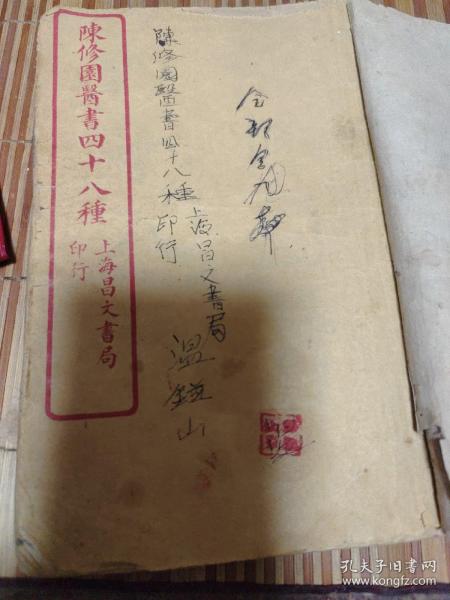 陳修園醫書四十八種
上海昌文書局
印行
陳修園醫書四十八種
上海昌文書局
印行
溫
山
孔夫子旧书网
www.kongfz.com